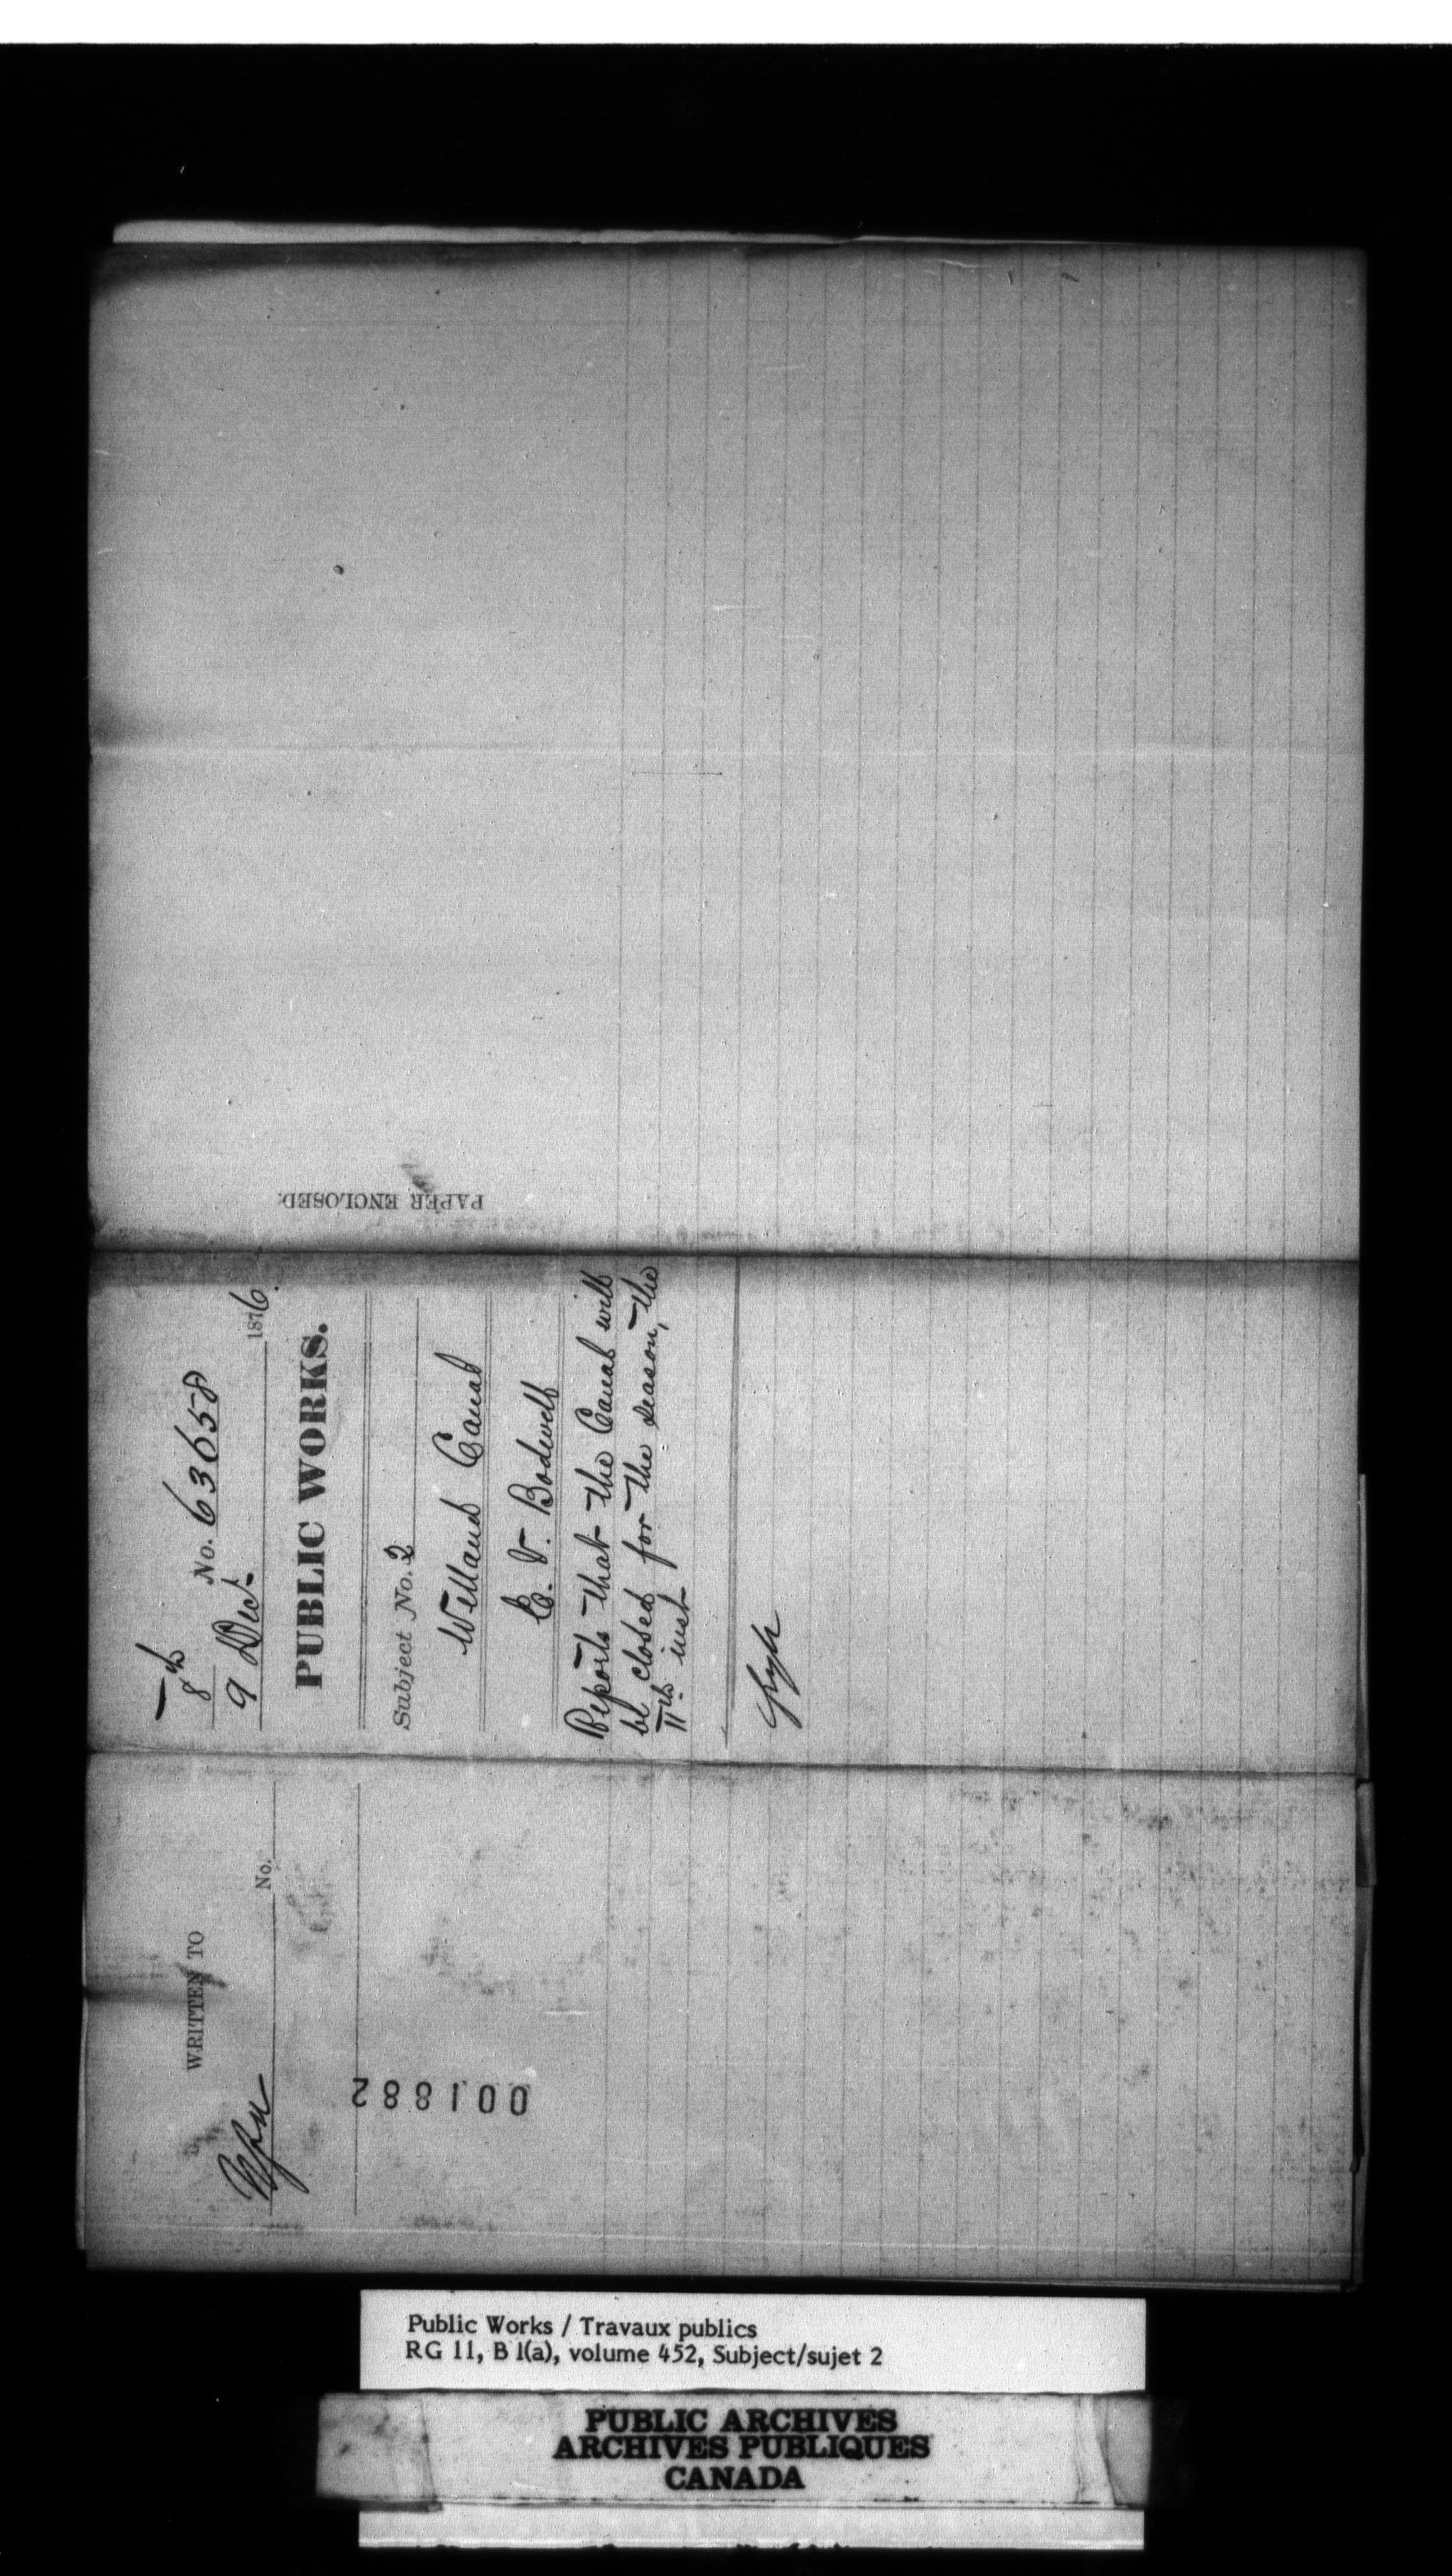 PAPER ENCLOSED.
7th
8
No. 63658
9 Dect. 1876.
PUBLIC WORKS.
Subject No. 2
Welland Canal
E. V. Bodwell
Reports that the Canal will
be closed for the season, the
11th inst
WRITTEN TO
No.
001882
Public Works / Travaux publics
RG 11, B 1(a), volume 452, Subject/sujet 2
PUBLIC ARCHIVES
ARCHIVES PUBLIQUES
CANADA